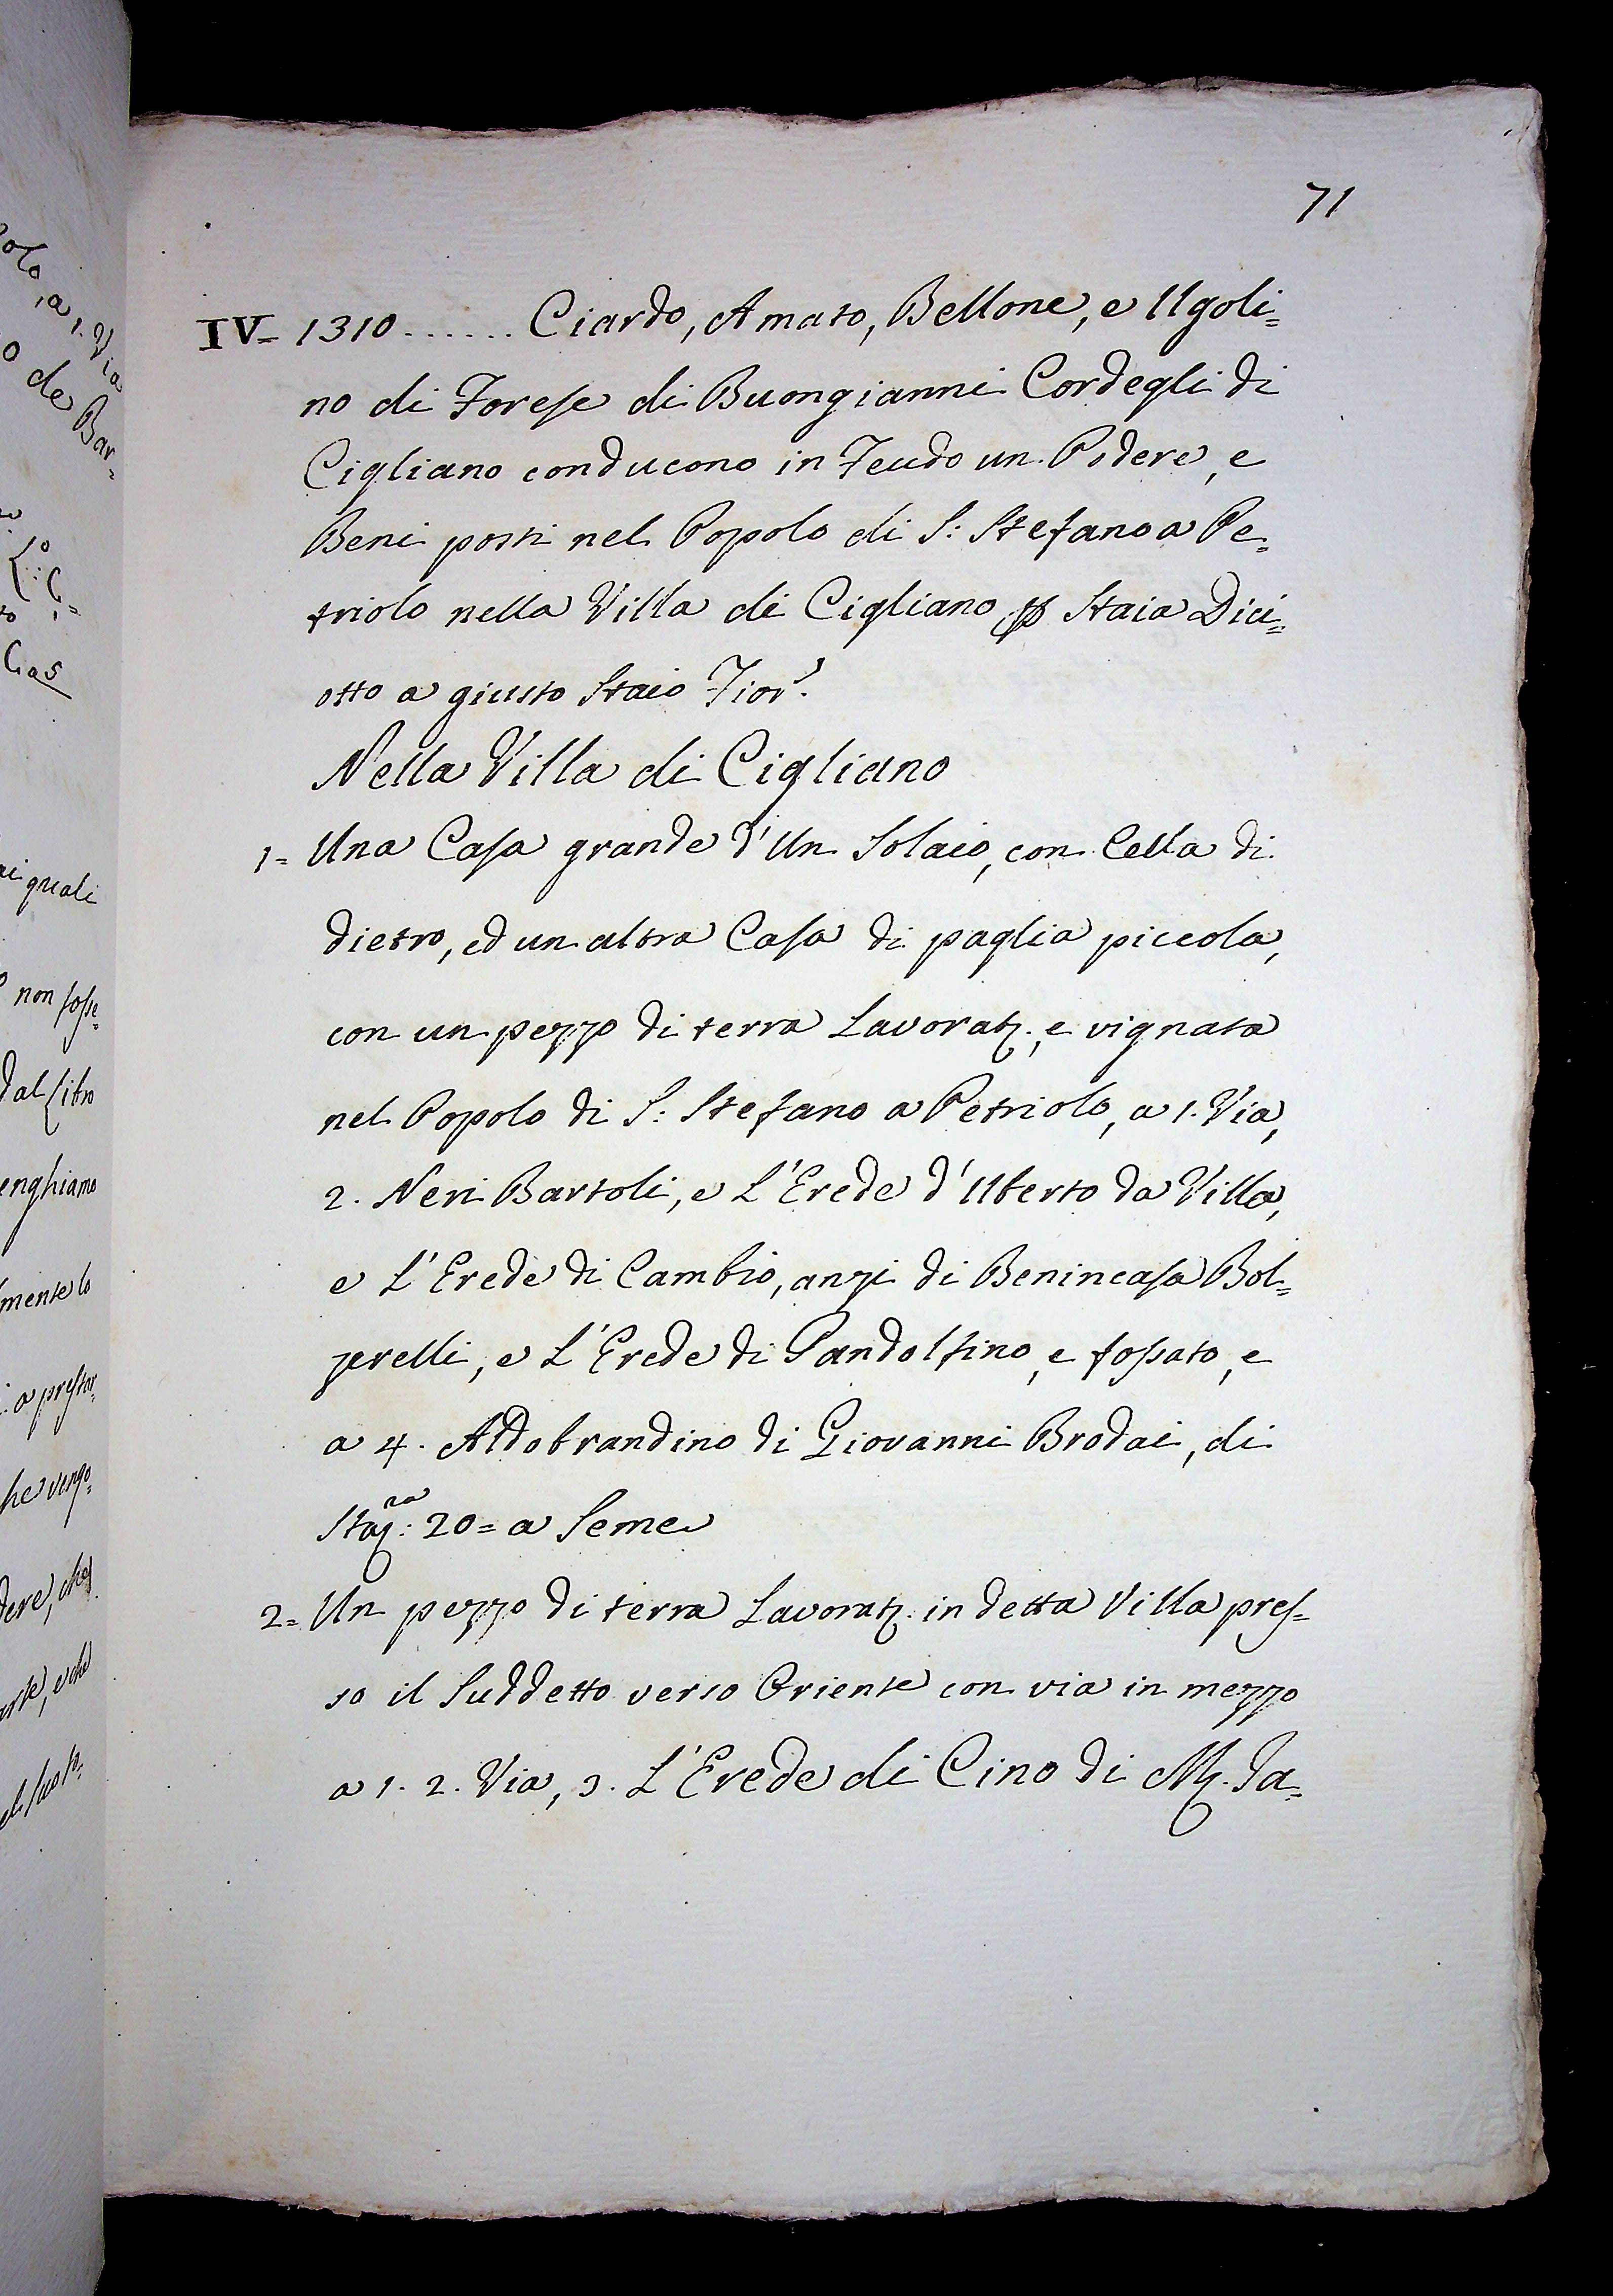 71
IV= 1310...... Ciardo, Amato, Bellone, e Ugoli=
no di Forese di Buongianni Cordegli di
Cigliano conducono in Feudo un Podere, e
Beni posti nel Popolo di S: Stefano a Pe=
triolo nella Villa di Cigliano p Staia Dici=
otto a giusto Staio Fior.
Nella Villa di Cigliano
1= Una Casa grande d'Un Solaio, con Cella di
dietro, ed un altra Casa di paglia piccola,
con un pezzo di terra Lavorat., e vignata
nel Popolo di S: Stefano a Petriolo, a 1. Via,
2. Neri Bartoli, e L'Erede d'Uberto da Villa,
e L'Erede di Cambio, anzi di Benincasa Bol=
zerelli, e L'Erede di Pandolfino, e fossato, e
a 4. Aldobrandino di Giovanni Brodai, di
Sta: ra 20= a Seme
2= Un pezzo di terra Lavorat. in detta Villa pres=
so il Suddetto verso Oriente con via in mezzo
a 1. 2. Via, 3. L'Erede di Cino di M. Ja=
a 1. Via
o de Bar=
Cas
quali
non fosse=
dal Libro
enghiamo
mente lo
a prestar=
he vengo=
dere, che